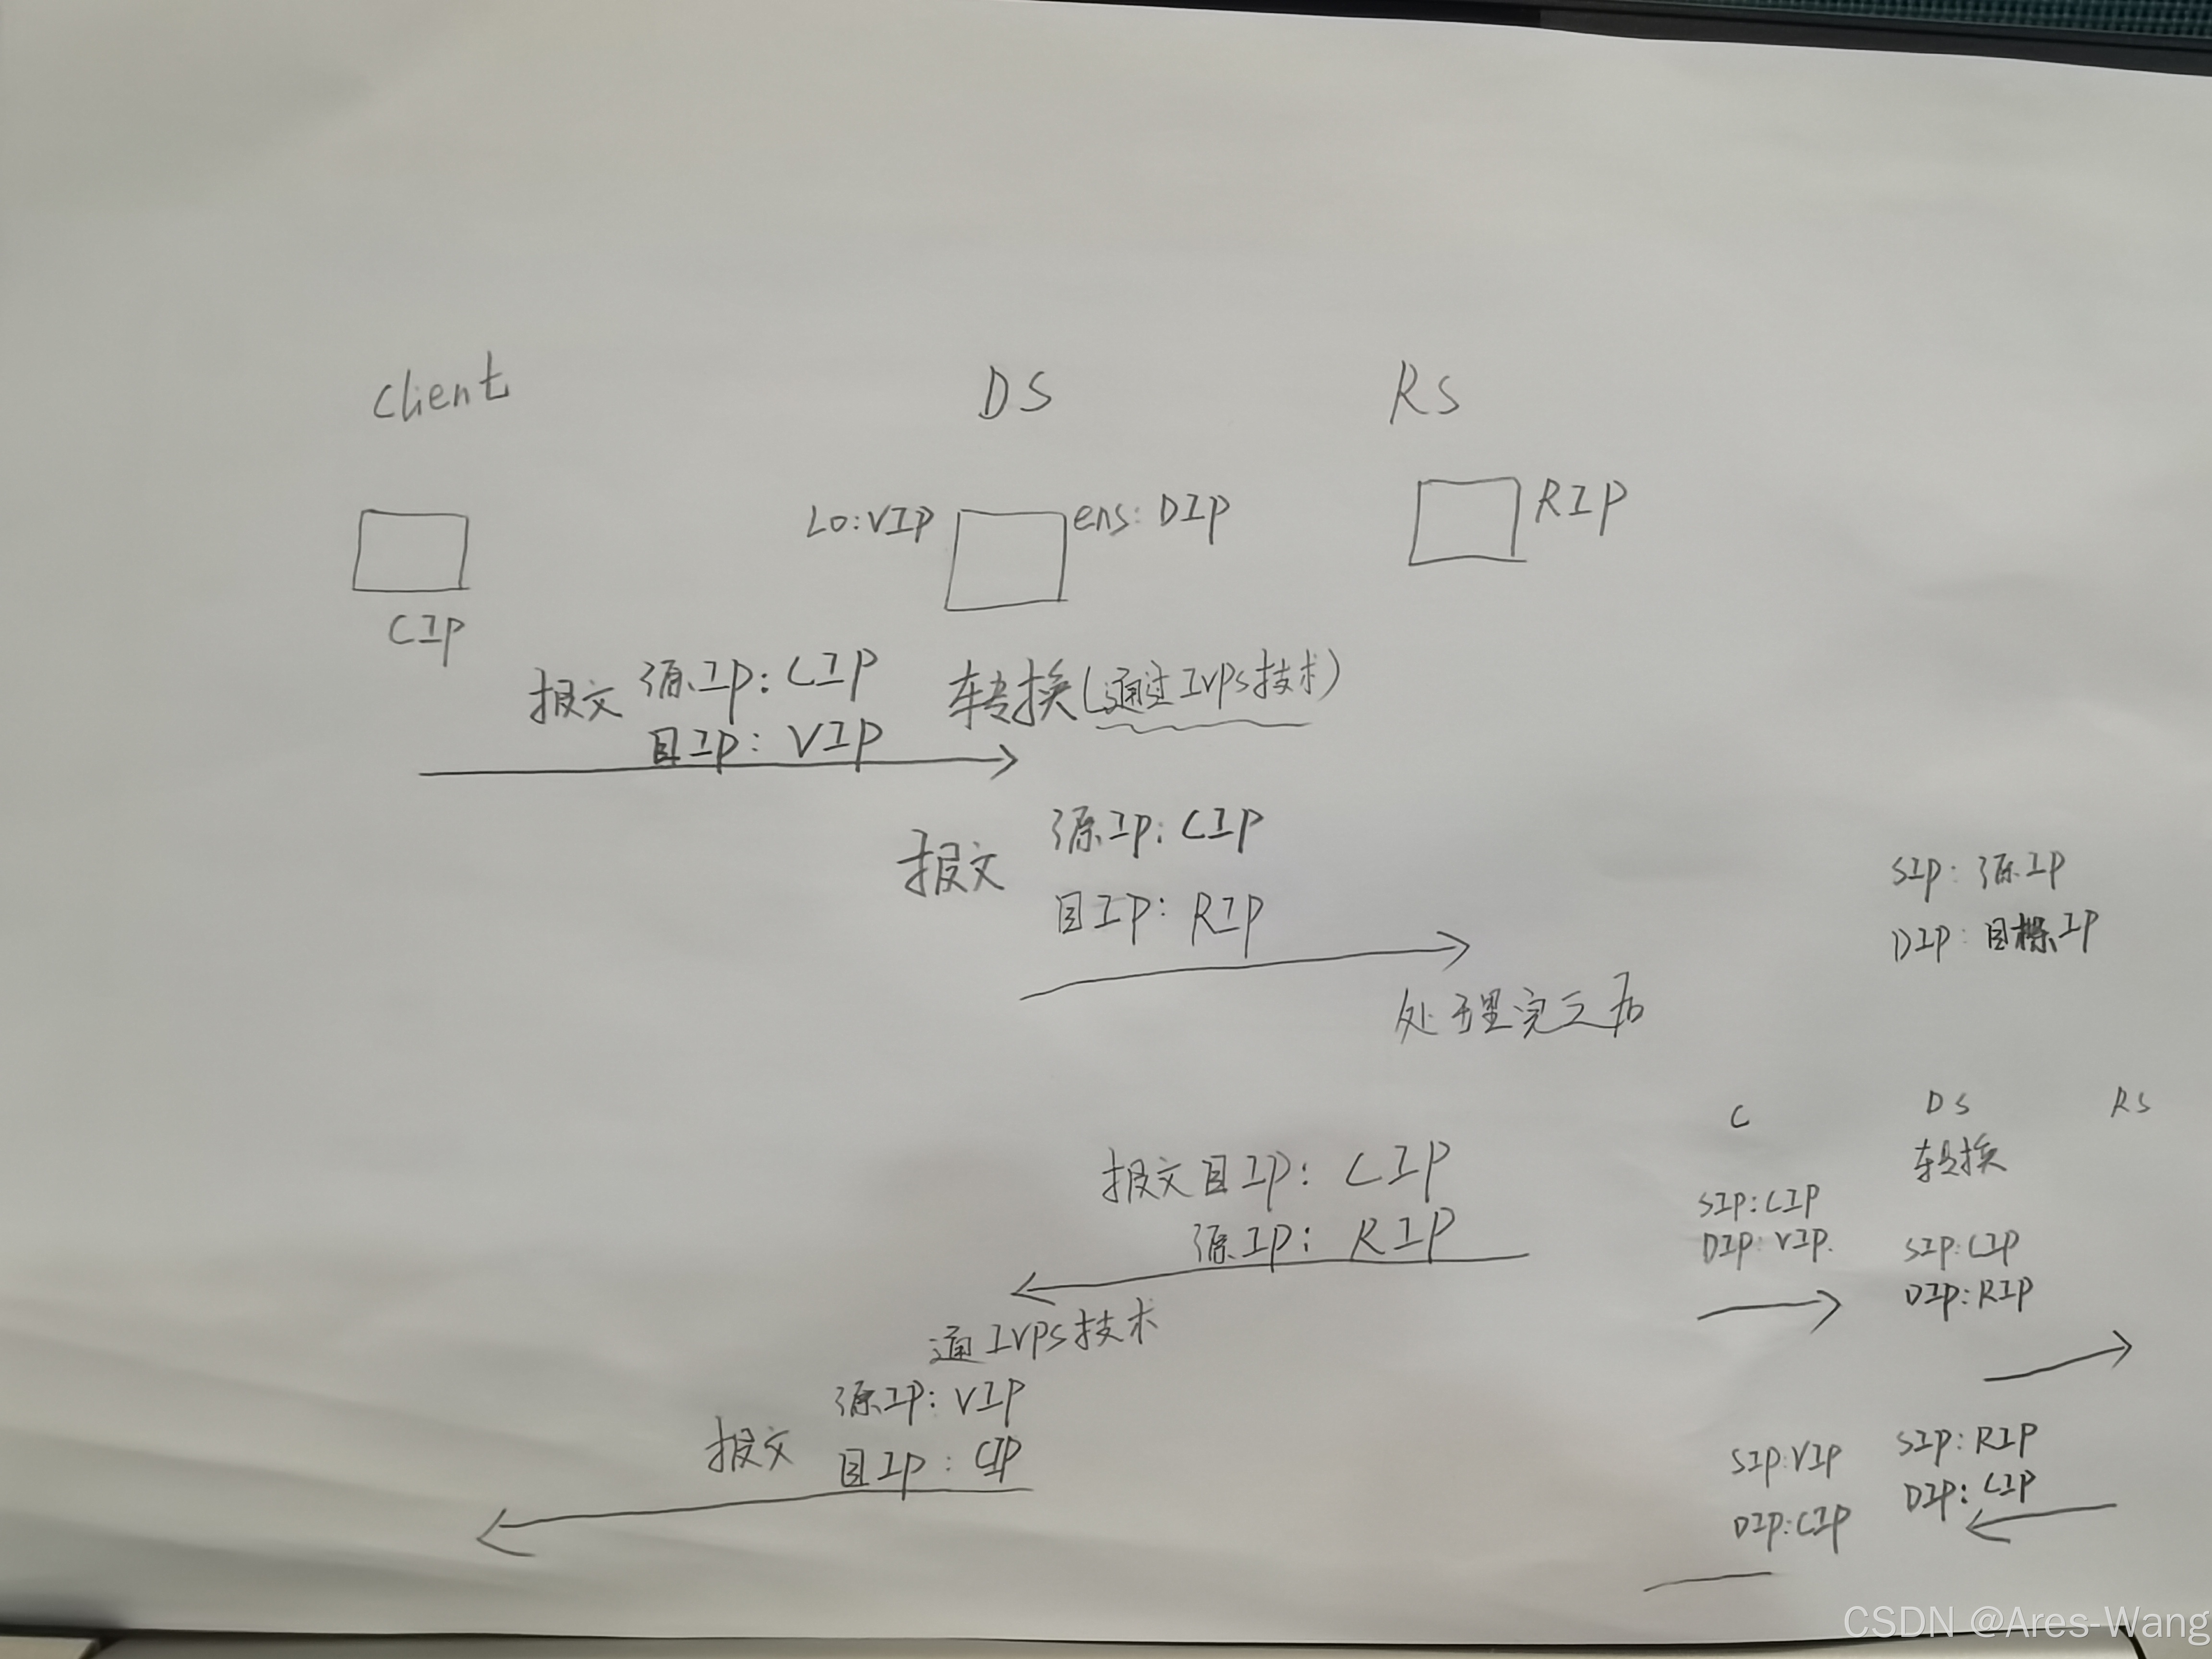 Client
DS
RS
Lo:VIP
ens: DIP
RIP
CIP
报文 源IP: CIP
目IP: VIP
转换(通过IVPS技术)
报文 源IP: CIP
目IP: RIP
处理完之后
SIP: 源IP
DIP: 目标IP
报文目IP: CIP
源IP: RIP
通IVPS技术
报文 源IP: VIP
目IP: CIP
C DS RS
转换
SIP:CIP
DIP: VIP.
SIP:CIP
DIP:RIP
SIP: RIP
DIP: CIP
SIP:VIP
DIP:CIP
CSDN @Ares-Wang